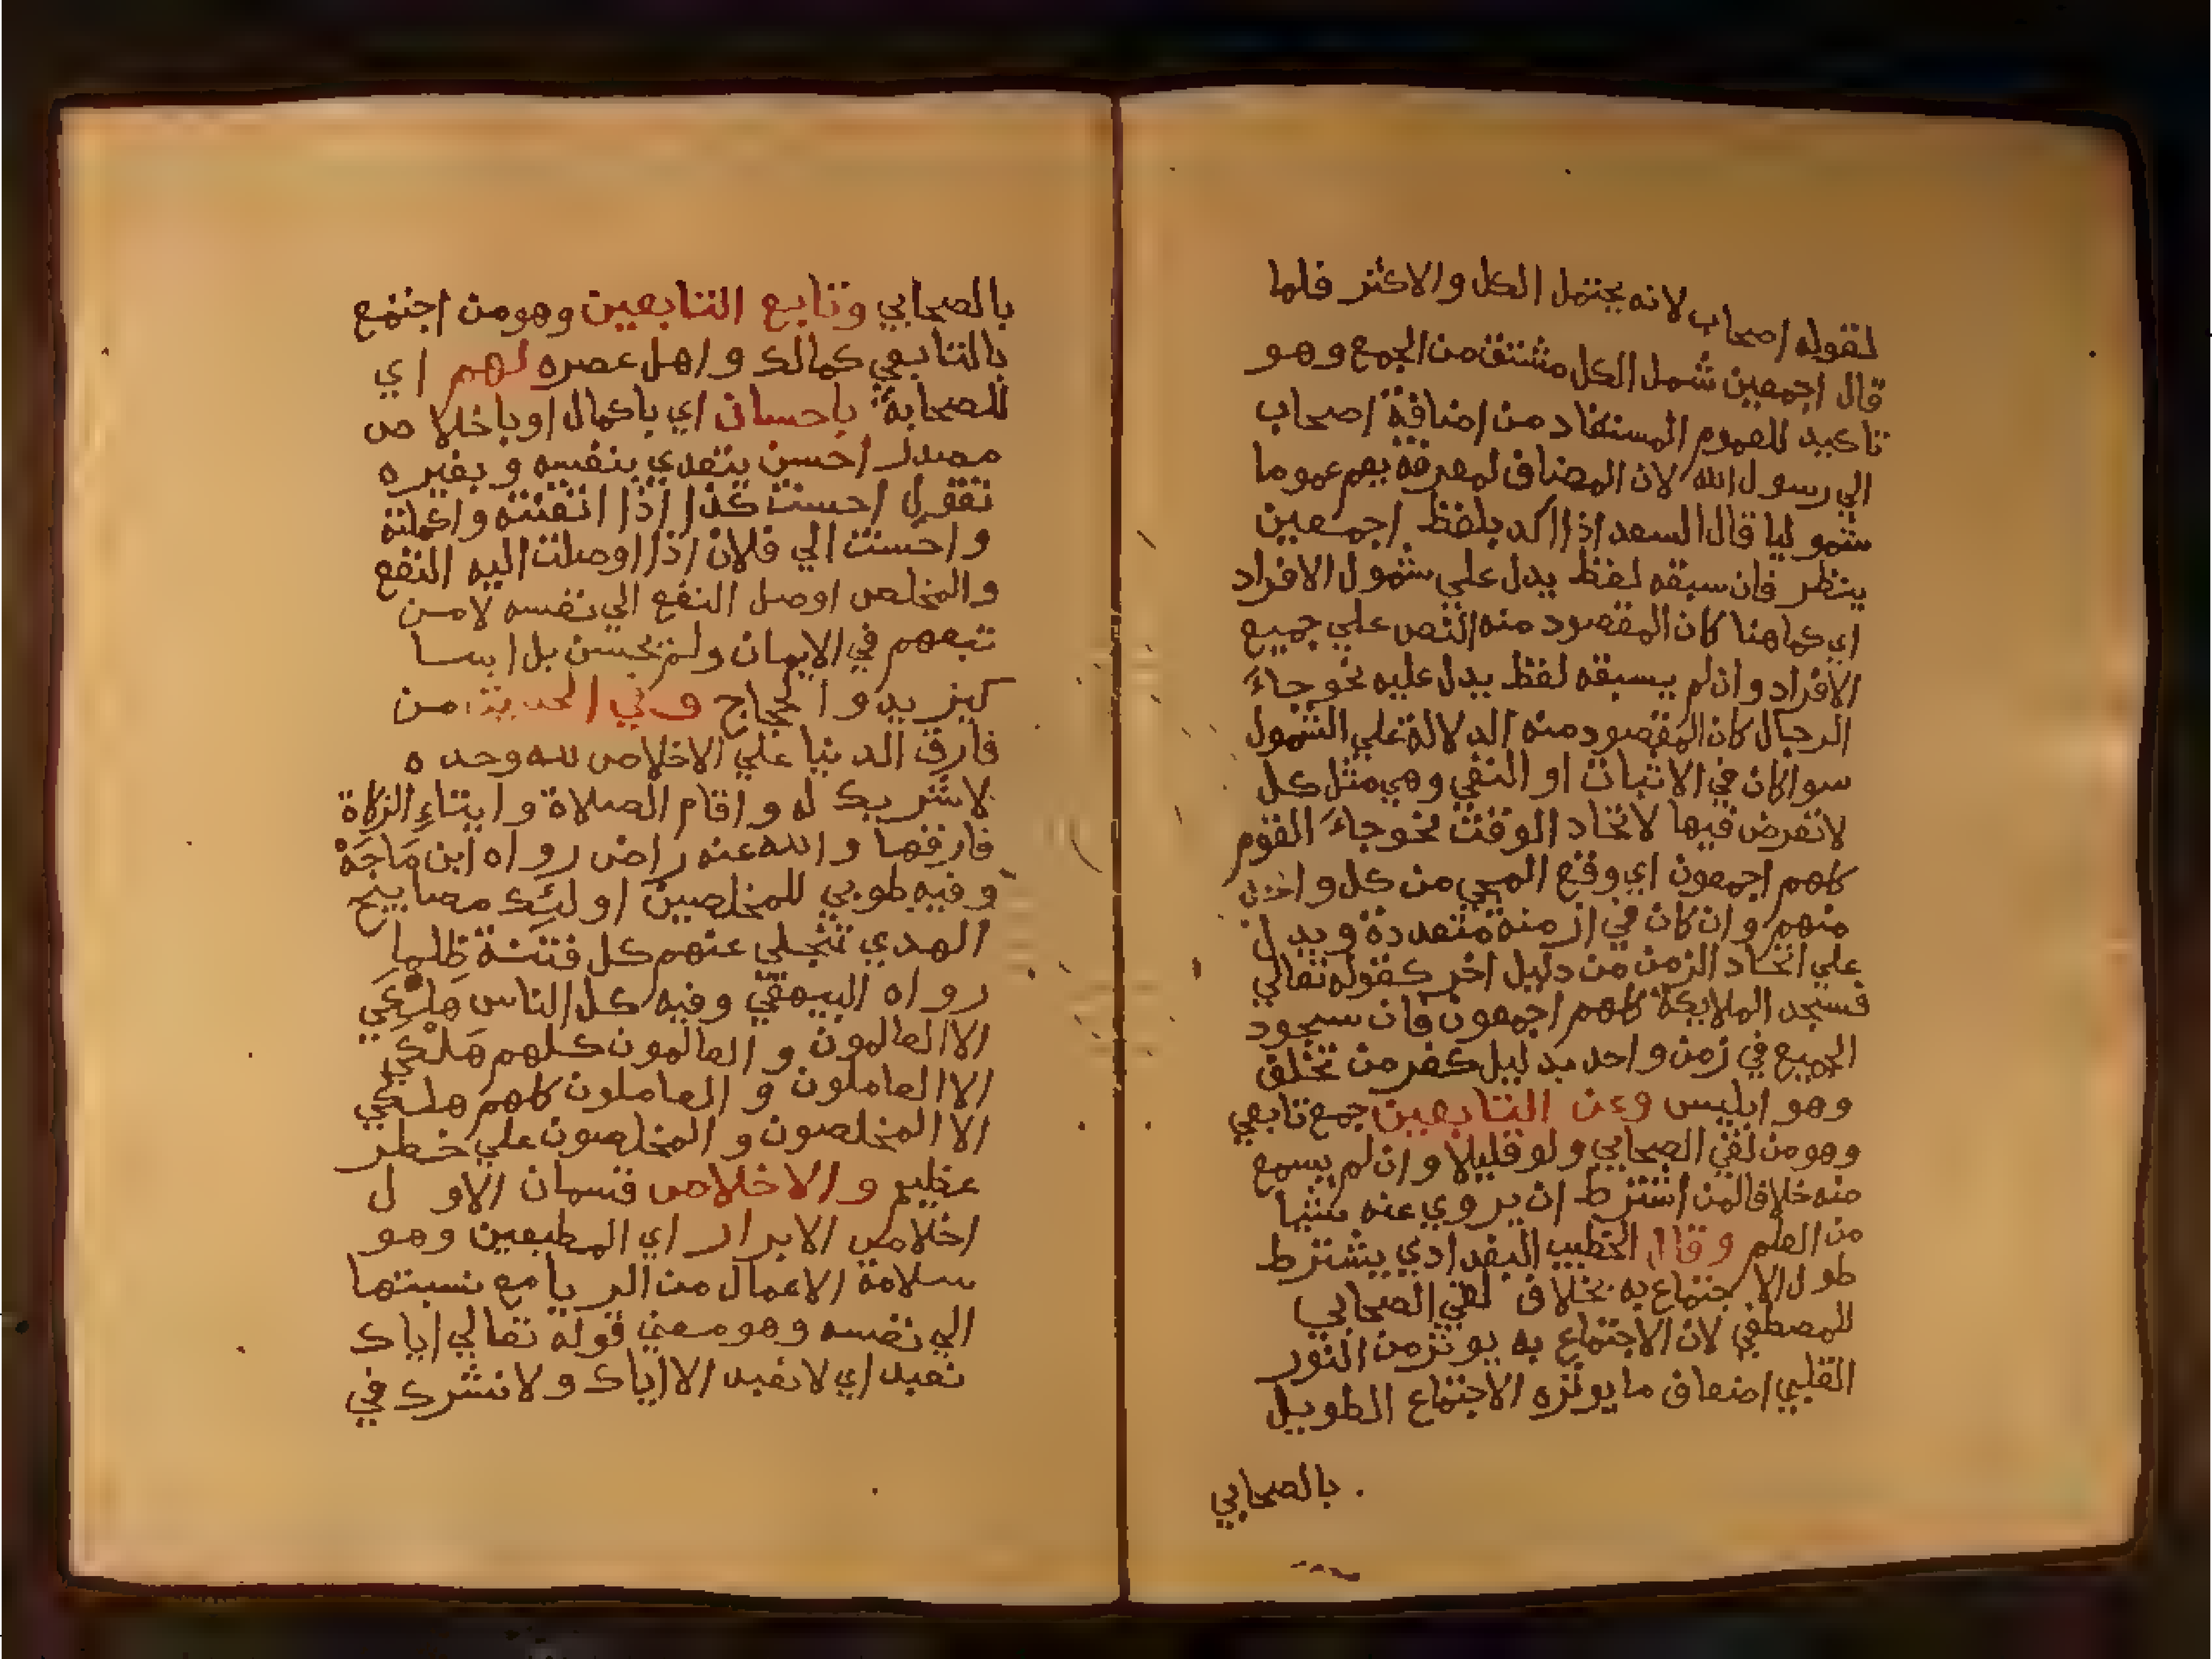 لقوله اصحاب لانه يحتمل الكل والاكثر فلما
قال اجمعين شمل الكل مشتق من الجمع وهو
تاكيد للعموم المستفاد من اضافة اصحاب
الي رسول الله لان المضاف لمعرفة يعم عموما
شموليا قال السعد اذا اكد بلفظ اجمعين
ينظر فان سبقه لفظ يدل علي شمول الافراد
اي كما هنا كان المقصود منه النص علي جميع
الافراد وان لم يسبقه لفظ يدل عليه نحو جاءَ
الرجال كان المقصود منه الدلالة علي الشمول
سوا كان في الاثبات او النفي وهي مثل كل
لا تعرض فيها لاتحاد الوقت نحو جاءَ القوم
كلهم اجمعون اي وقع المجي من كل واحد
منهم وان كان في ازمنة متعددة ويدل
علي اتحاد الزمن من دليل اخر كقوله تعالي
فسجد الملايكة كلهم اجمعون فان سجود
الجميع في زمن واحد بدليل كفر من تخلف
وهو ابليس وعن التابعين جمع تابعي
وهو من لقي الصحابي ولو قليلا وان لم يسمع
منه خلافا لمن اشترط ان يروي عنه شيا
من العلم وقال الخطيب البغدادي يشترط
طول الاجتماع به بخلاف لقي الصحابي
للمصطفي لان الاجتماع به يوثر من النور
القلبي اضعاف ما يوثره الاجتماع الطويل
بالصحابي
بالصحابي وتابع التابعين وهو من اجتمع
بالتابعي كمالك واهل عصره لهم اي
للصحابة باحسان اي باكمال او باخلاص
مصدر احسن يتعدي بنفسه وبغيره
تقول احسنت كذا اذا اتقنته واكملته
واحسنت الي فلان اذا اوصلت اليه النفع
والمخلص اوصل النفع الي نفسه لا من
تبعهم في الايمان ولم يحسن بل اسا
كيزيد والحجاج وفي الحديث من
فارق الدنيا علي الاخلاص لله وحده
لا شريك له واقام الصلاة وايتاءِ الزكاة
فارقها والله عنه راض رواه ابن مَاجَهْ
وفيه طوبي للمخلصين اولئِك مصابيح
الهدي تنجلي عنهم كل فتنة ظلما
رواه البيهقي وفيه كل الناس هَلْكَي
الا العالمون والعالمون كلهم هَلْكي
الا العاملون والعاملون كلهم هلكي
الا المخلصون والمخلصون علي خطر
عظيم والاخلاص قسمان الاول
اخلاص الابرار اي المطيعين وهو
سلامة الاعمال من الريا مع نسبتها
الي نفسه وهو معني قوله تعالي اياك
نعبد اي لا نعبد الا اياك ولا نشرك في